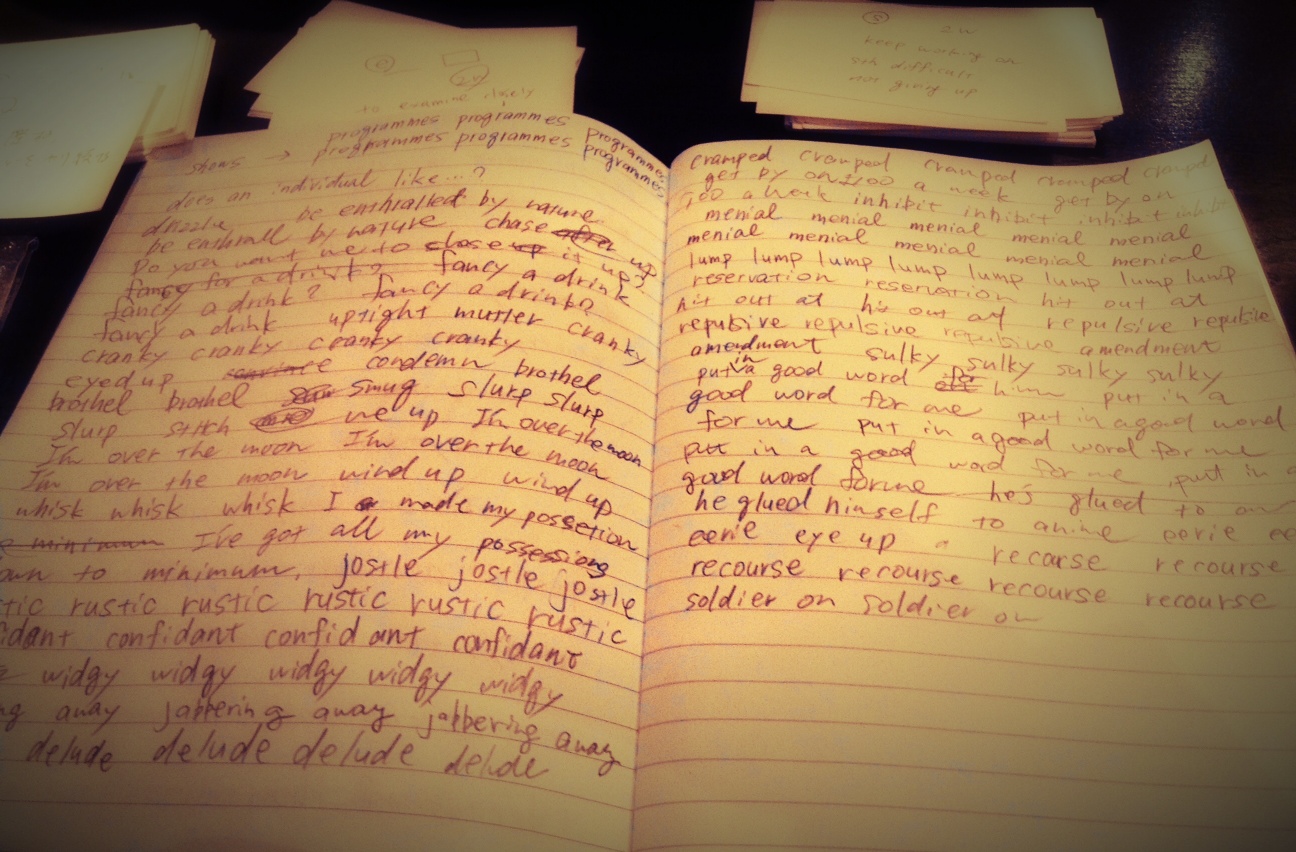 2 W
keep working on
sth difficult
not giving up
to examine closely
programmes programmes
shows → programmes programmes programmes programmes
does an individual like...?
drizzle be enthralled by nature
be enthrall by nature chase after up
Do you want me to close up it up?
fancy for a drink? fancy a drink
fancy a drink? fancy a drink?
fancy a drink uptight mutter cranky
cranky cranky cranky cranky
eyed up condemn brothel
brothel brothel smug slurp slurp
slurp stitch me up I'm over the moon
I'm over the moon I'm over the moon
I'm over the moon wind up wind up
whisk whisk whisk I made my possetion
minimum I've got all my possessions
to minimum, jostle jostle jostle
rustic rustic rustic rustic rustic
confidant confidant confidant
widgy widgy widgy widgy widgy
away jabbering away jabbering away
delude delude delude delude
cramped cramped cramped cramped cramped
get by on £100 a week get by on
100 a week inhibit inhibit inhibit inhibit
menial menial menial menial menial
menial menial menial menial menial
lump lump lump lump lump lump lump lump
reservation reservation hit out at
hit out at hit out at repulsive repulsive
repulsive repulsive repulsive amendment
amendment sulky sulky sulky sulky
put in a good word for him put in a
good word for me put in a good word
for me put in a good word for me
put in a good word for me, put in a
good word for me he's glued to an
he glued himself to anime eerie
eerie eye up a recarse recourse
recourse recourse recourse recourse
soldier on soldier on